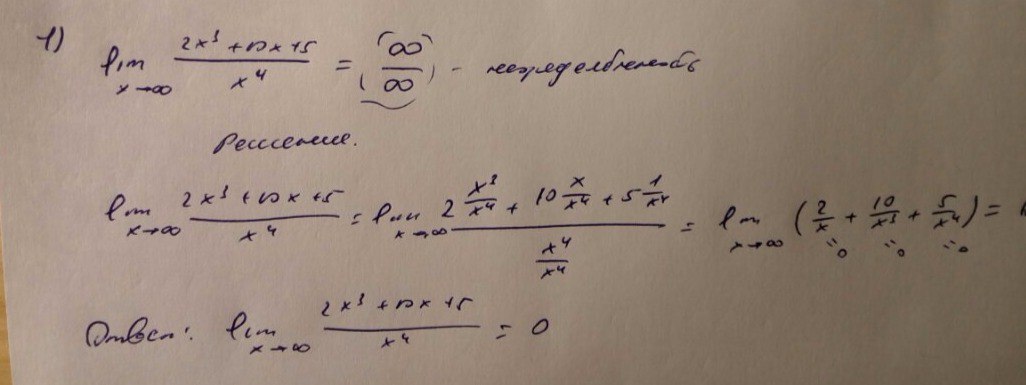 1) lim x→∞ (2x³ + 10x + 5)/x⁴ = (∞/∞) - неопределённость
Решение.
lim x→∞ (2x³ + 10x + 5)/x⁴ = lim x→∞ (2 x³/x⁴ + 10 x/x⁴ + 5 1/x⁴)/(x⁴/x⁴) = lim x→∞ (2/x + 10/x³ + 5/x⁴) =
"0 "0 "0
Ответ: lim x→∞ (2x³ + 10x + 5)/x⁴ = 0